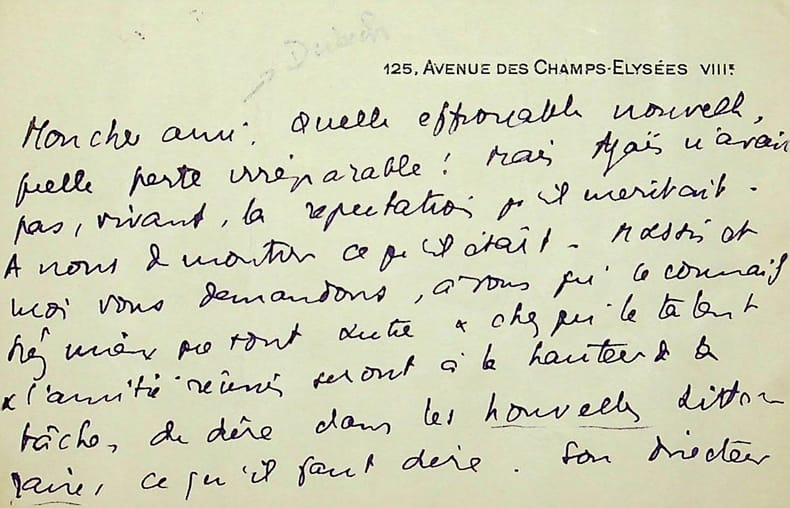 125, AVENUE DES CHAMPS-ELYSÉES VIIIE
Mon cher ami. Quelle effroyable nouvelle,
quelle perte irréparable ! Mais n'avait
pas, vivant, la reputation qu'il meritait.
A nous de montrer ce qu'il était. Massis et
moi vous demandons, à vous qui le connaissiez
mieux que tout autre & chez qui le talent
& l'amitié réunis seront à la hauteur de la
tâche, de dire dans les Nouvelles Litté
raires, ce qu'il faut dire. Son directeur